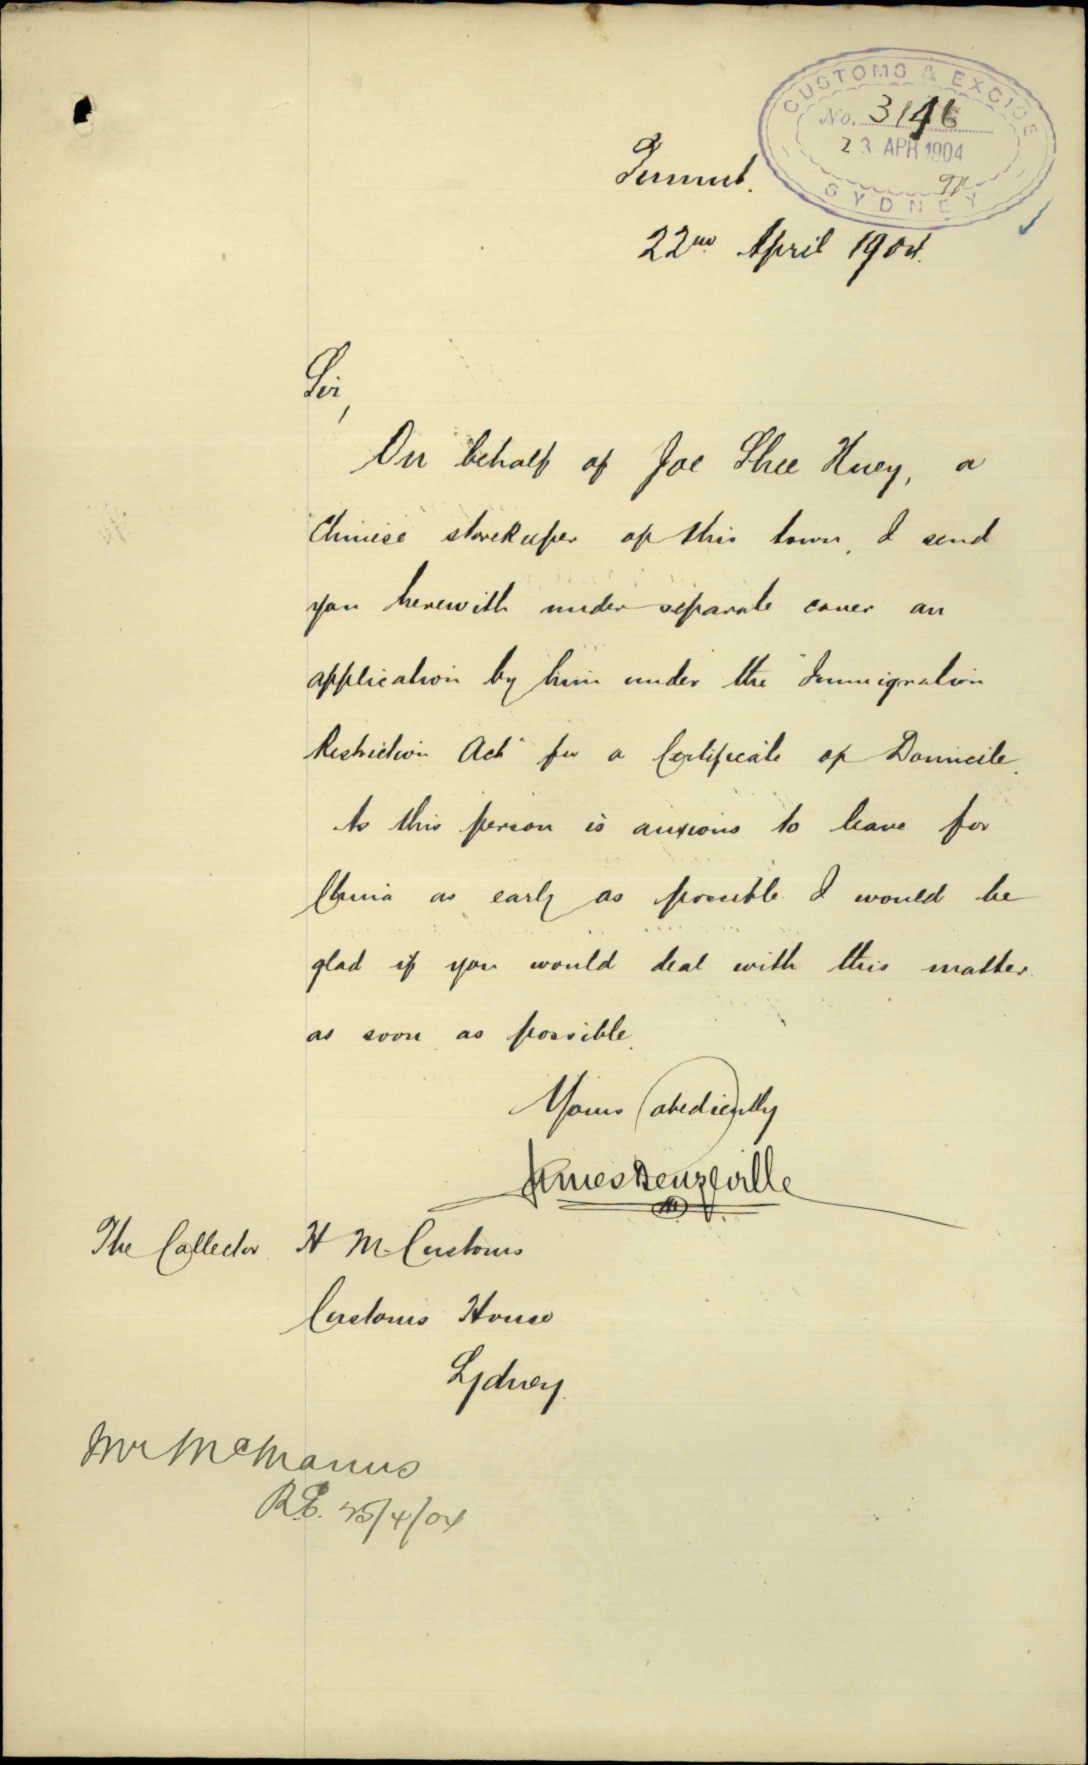 CUSTOMS & EXCISE
No. 3146
23 APR 1904
SYDNEY
Tumut.
22nd April 1904.
Sir,
On behalf of Joe Shee Huey, a
Chinese storekeeper of this town, I send
you herewith under separate cover an
application by him under the "Immigration
Restriction Act" for a Certificate of Domicile.
As this person is anxious to leave for
China as early as possible I would be
glad if you would deal with this matter
as soon as possible.
Yours obediently
James Benzeville
The Collector H M Customs
Customs House
Sydney.
Mr McManus
25/4/04